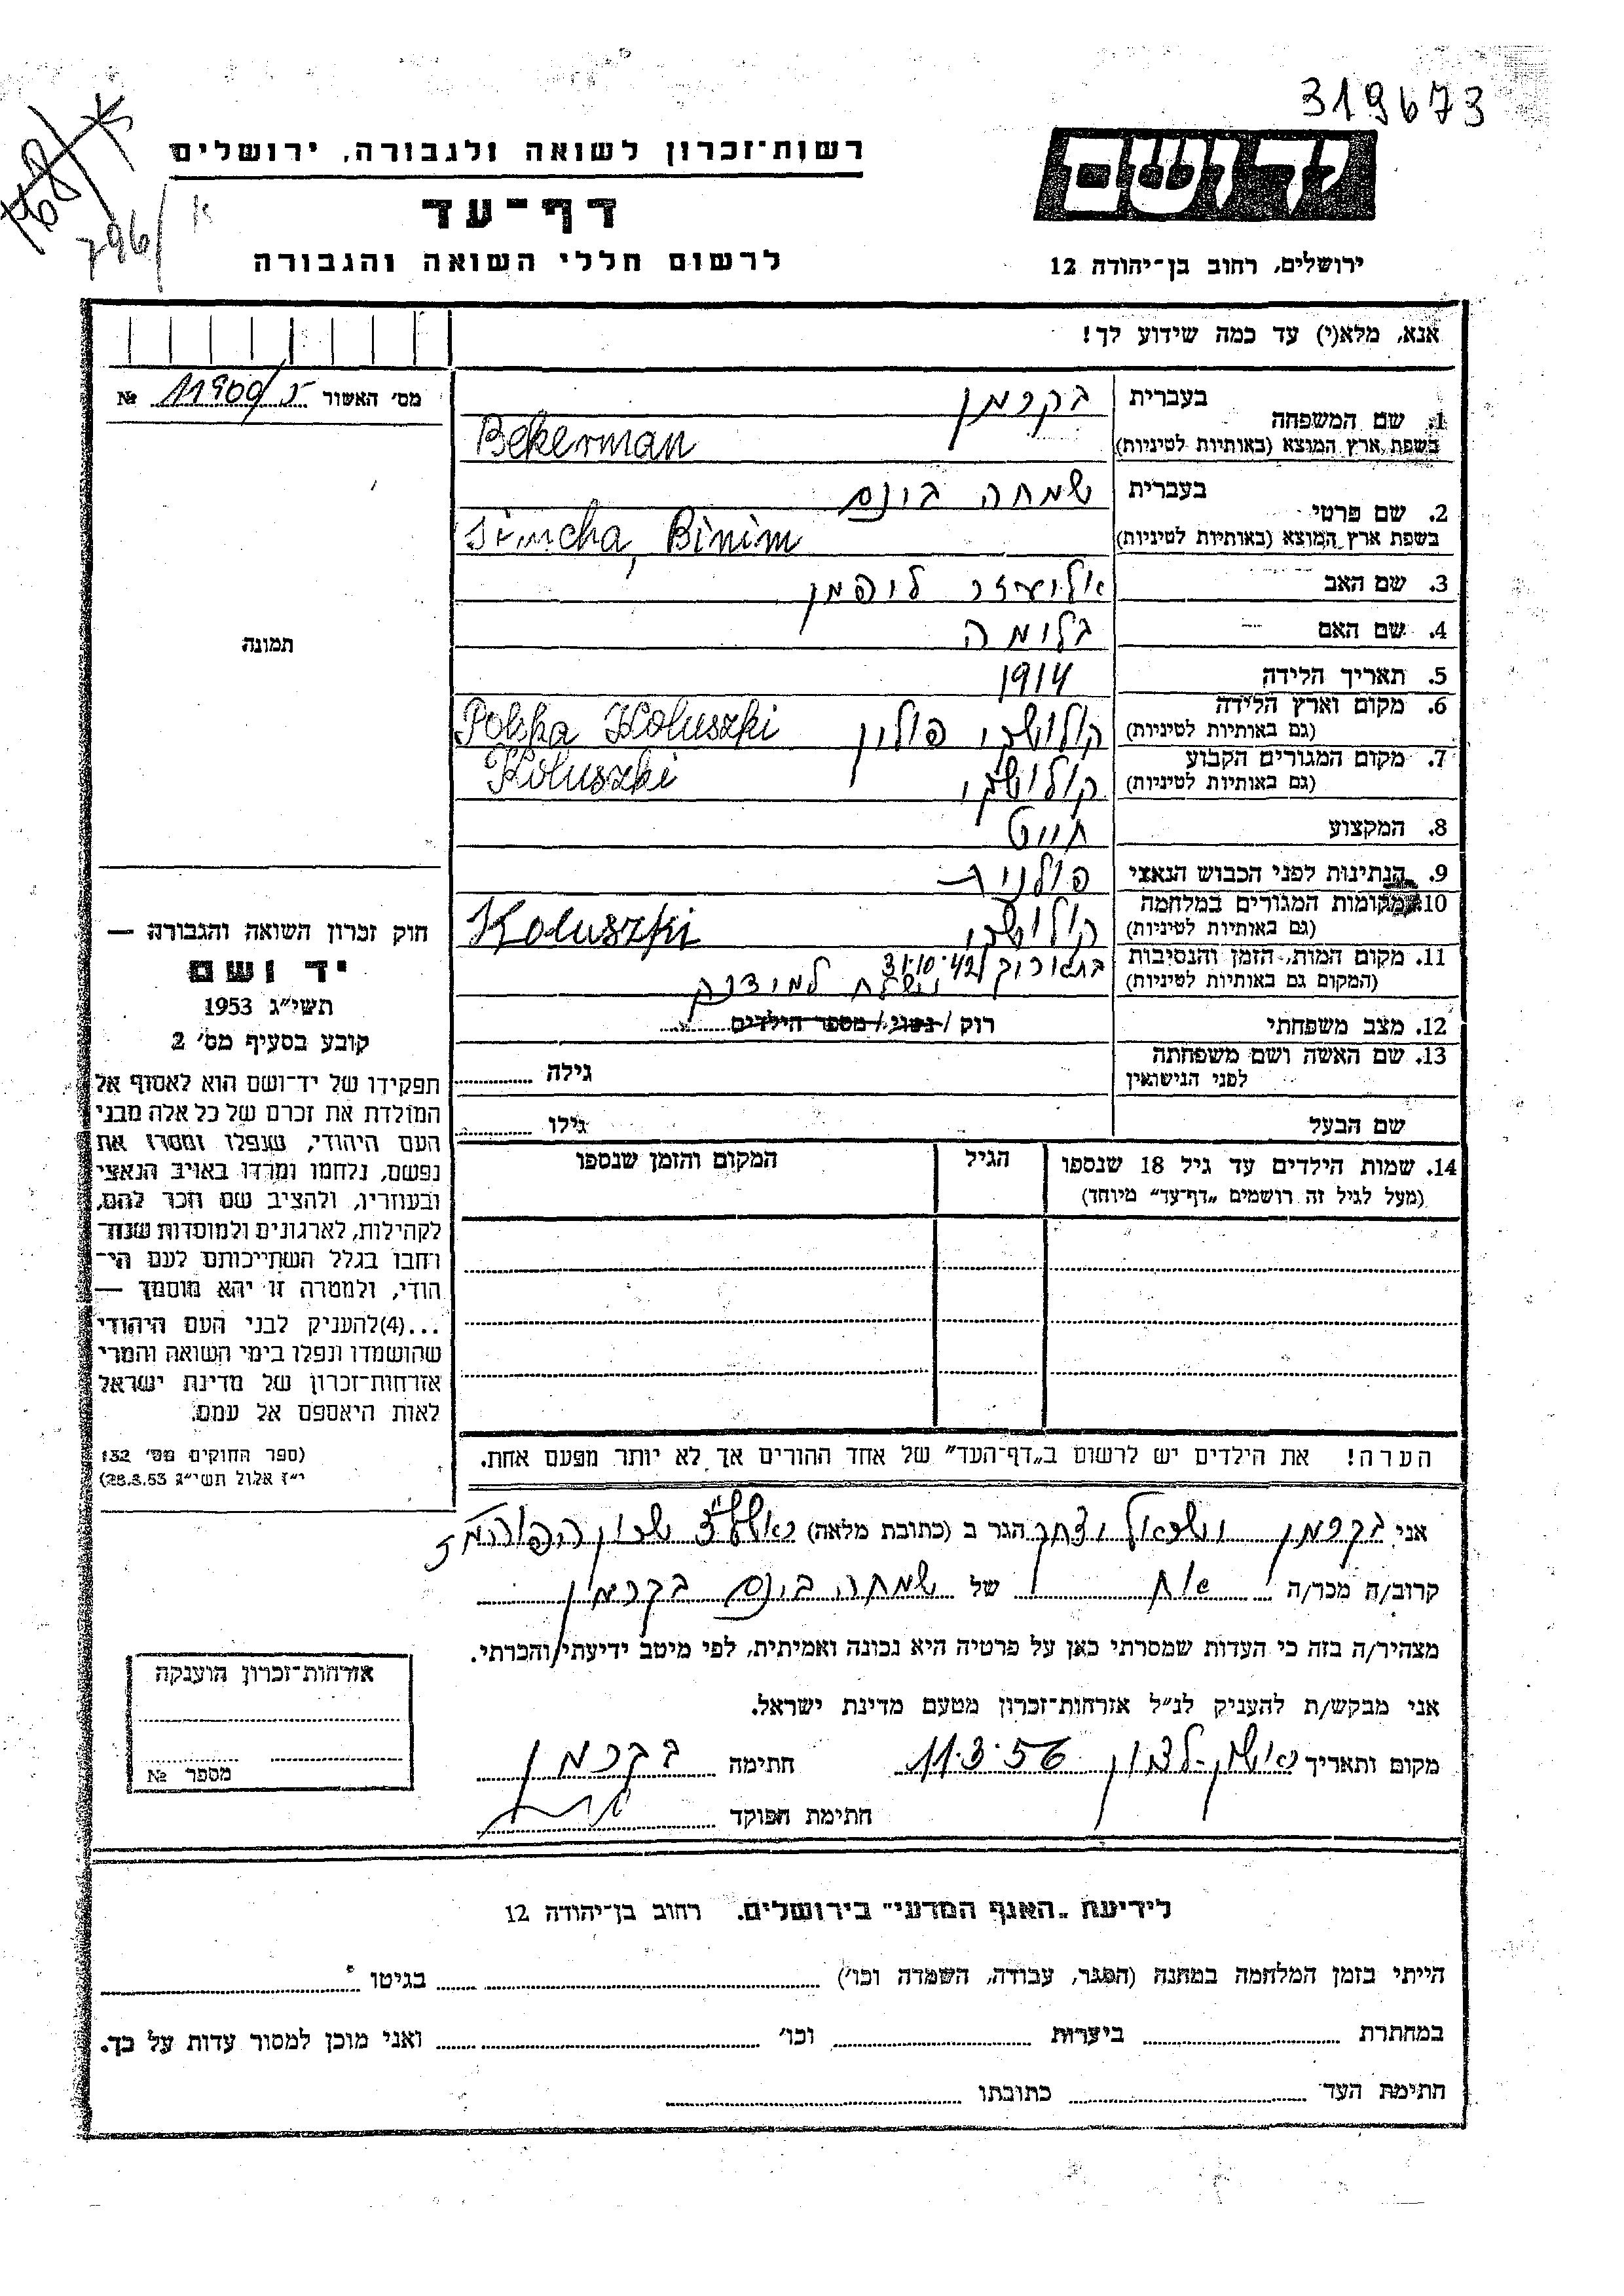 319673
168/א
796/א
רשות־זכרון לשואה ולגבורה, ירושלים
יד ושם
דף־עד
לרשום חללי השואה והגבורה
ירושלים, רחוב בן־יהודה 12
אנא, מלא(י) עד כמה שידוע לך!
מס׳ האשור 11900/ № 
1. שם המשפחה
בעברית בקרמן
בשפת ארץ המוצא (באותיות לטיניות) Bekerman
2. שם פרטי
בעברית שמחה בונם
בשפת ארץ המוצא (באותיות לטיניות) Simcha, Binim
3. שם האב אליעזר ליפמן
4. שם האם בלומה
5. תאריך הלידה 1914
6. מקום וארץ הלידה
(גם באותיות לטיניות) קולושקי פולין Polska Koluszki
7. מקום המגורים הקבוע
(גם באותיות לטיניות) קולושקי Koluszki
8. המקצוע חייט
9. הנתינות לפני הכבוש הנאצי פולנית
10. מקומות המגורים במלחמה
(גם באותיות לטיניות) קולושקי Koluszki
11. מקום המות, הזמן והנסיבות
(המקום גם באותיות לטיניות) בתאריך 31.10.42
נשלח
12. מצב משפחתי רוק / נשוי / מספר הילדים
13. שם האשה ושם משפחתה
לפני הנישואין
גילה
שם הבעל
גילו
14. שמות הילדים עד גיל 18 שנספו
(מעל לגיל זה רושמים „דף־עד” מיוחד)
הגיל
המקום והזמן שנספו
תמונה
חוק זכרון השואה והגבורה —
יד ושם
תשי״ג 1953
קובע בסעיף מס׳ 2
תפקידו של יד־ושם הוא לאסוף אל
המולדת את זכרם של כל אלה מבני
העם היהודי, שנפלו ומסרו את
נפשם, נלחמו ומרדו באויב הנאצי
ובעוזריו, ולהציב שם וזכר להם,
לקהילות, לארגונים ולמוסדות שנח־
רחבו בגלל השתייכותם לעם הי־
הודי, ולמטרה זו יהא מוסמך —
...(4)להעניק לבני העם היהודי
שהושמדו ונפלו בימי השואה והמרי
אזרחות־זכרון של מדינת ישראל
לאות היאספם אל עמם.
(ספר החוקים מס׳ 132
י״ז אלול תשי״ג 28.8.53)
הערה! את הילדים יש לרשום ב„דף־העד” של אחד ההורים אך לא יותר מפעם אחת.
אני בקרמן ישראל יצחק הגר ב (כתובת מלאה) ראשל״צ שכון הפוהמ״ז
קרוב/ה מכר/ה אח של שמחה בונם בקרמן
מצהיר/ה בזה כי העדות שמסרתי כאן על פרטיה היא נכונה ואמיתית, לפי מיטב ידיעתי והכרתי.
אני מבקש/ת להעניק לנ״ל אזרחות־זכרון מטעם מדינת ישראל.
מקום ותאריך ראשון-לציון 11.3.56 חתימה בקרמן
חתימת הפוקד
אזרחות־זכרון הוענקה
מספר №
לידיעת „האגף המדעי” בירושלים, רחוב בן־יהודה 12
הייתי בזמן המלחמה במחנה (הסגר, עבודה, השמדה וכו׳) בגיטו
במחתרת ביערות וכו׳ ואני מוכן למסור עדות על כך.
חתימת העד כתובתו